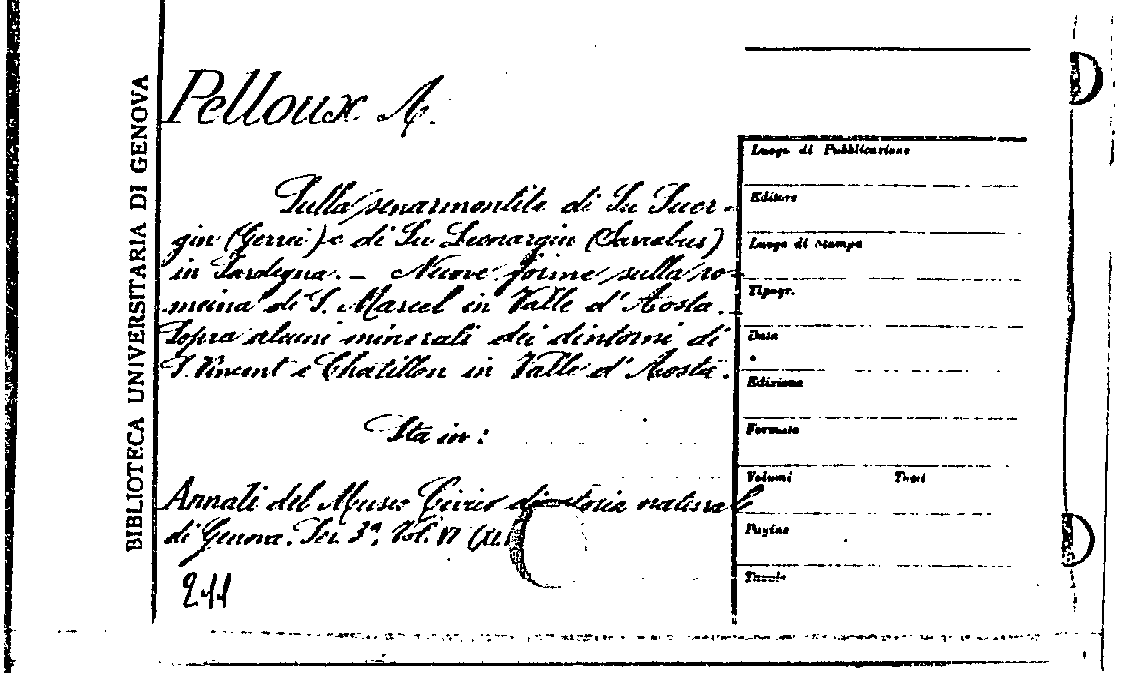 BIBLIOTECA UNIVERSITARIA DI GENOVA
Pelloux A.
Sulla senarmontite di Su Suer-
gin (Gerrei) e di Su Leonargiu (Sarrabus)
in Sardegna. – Nuove forme sulla ro-
meina di S. Marcel in Valle d'Aosta. –
Sopra alcuni minerali dei dintorni di
S. Vincent e Chatillon in Valle d'Aosta.
Sta in:
Annali del Museo Civico di storia naturale
di Genova. Ser. 3ª, Vol. VI
211
Luogo di Pubblicazione
Editore
Luogo di stampa
Tipogr.
Data
Edizione
Formato
Volumi Tomi
Pagine
Tavole